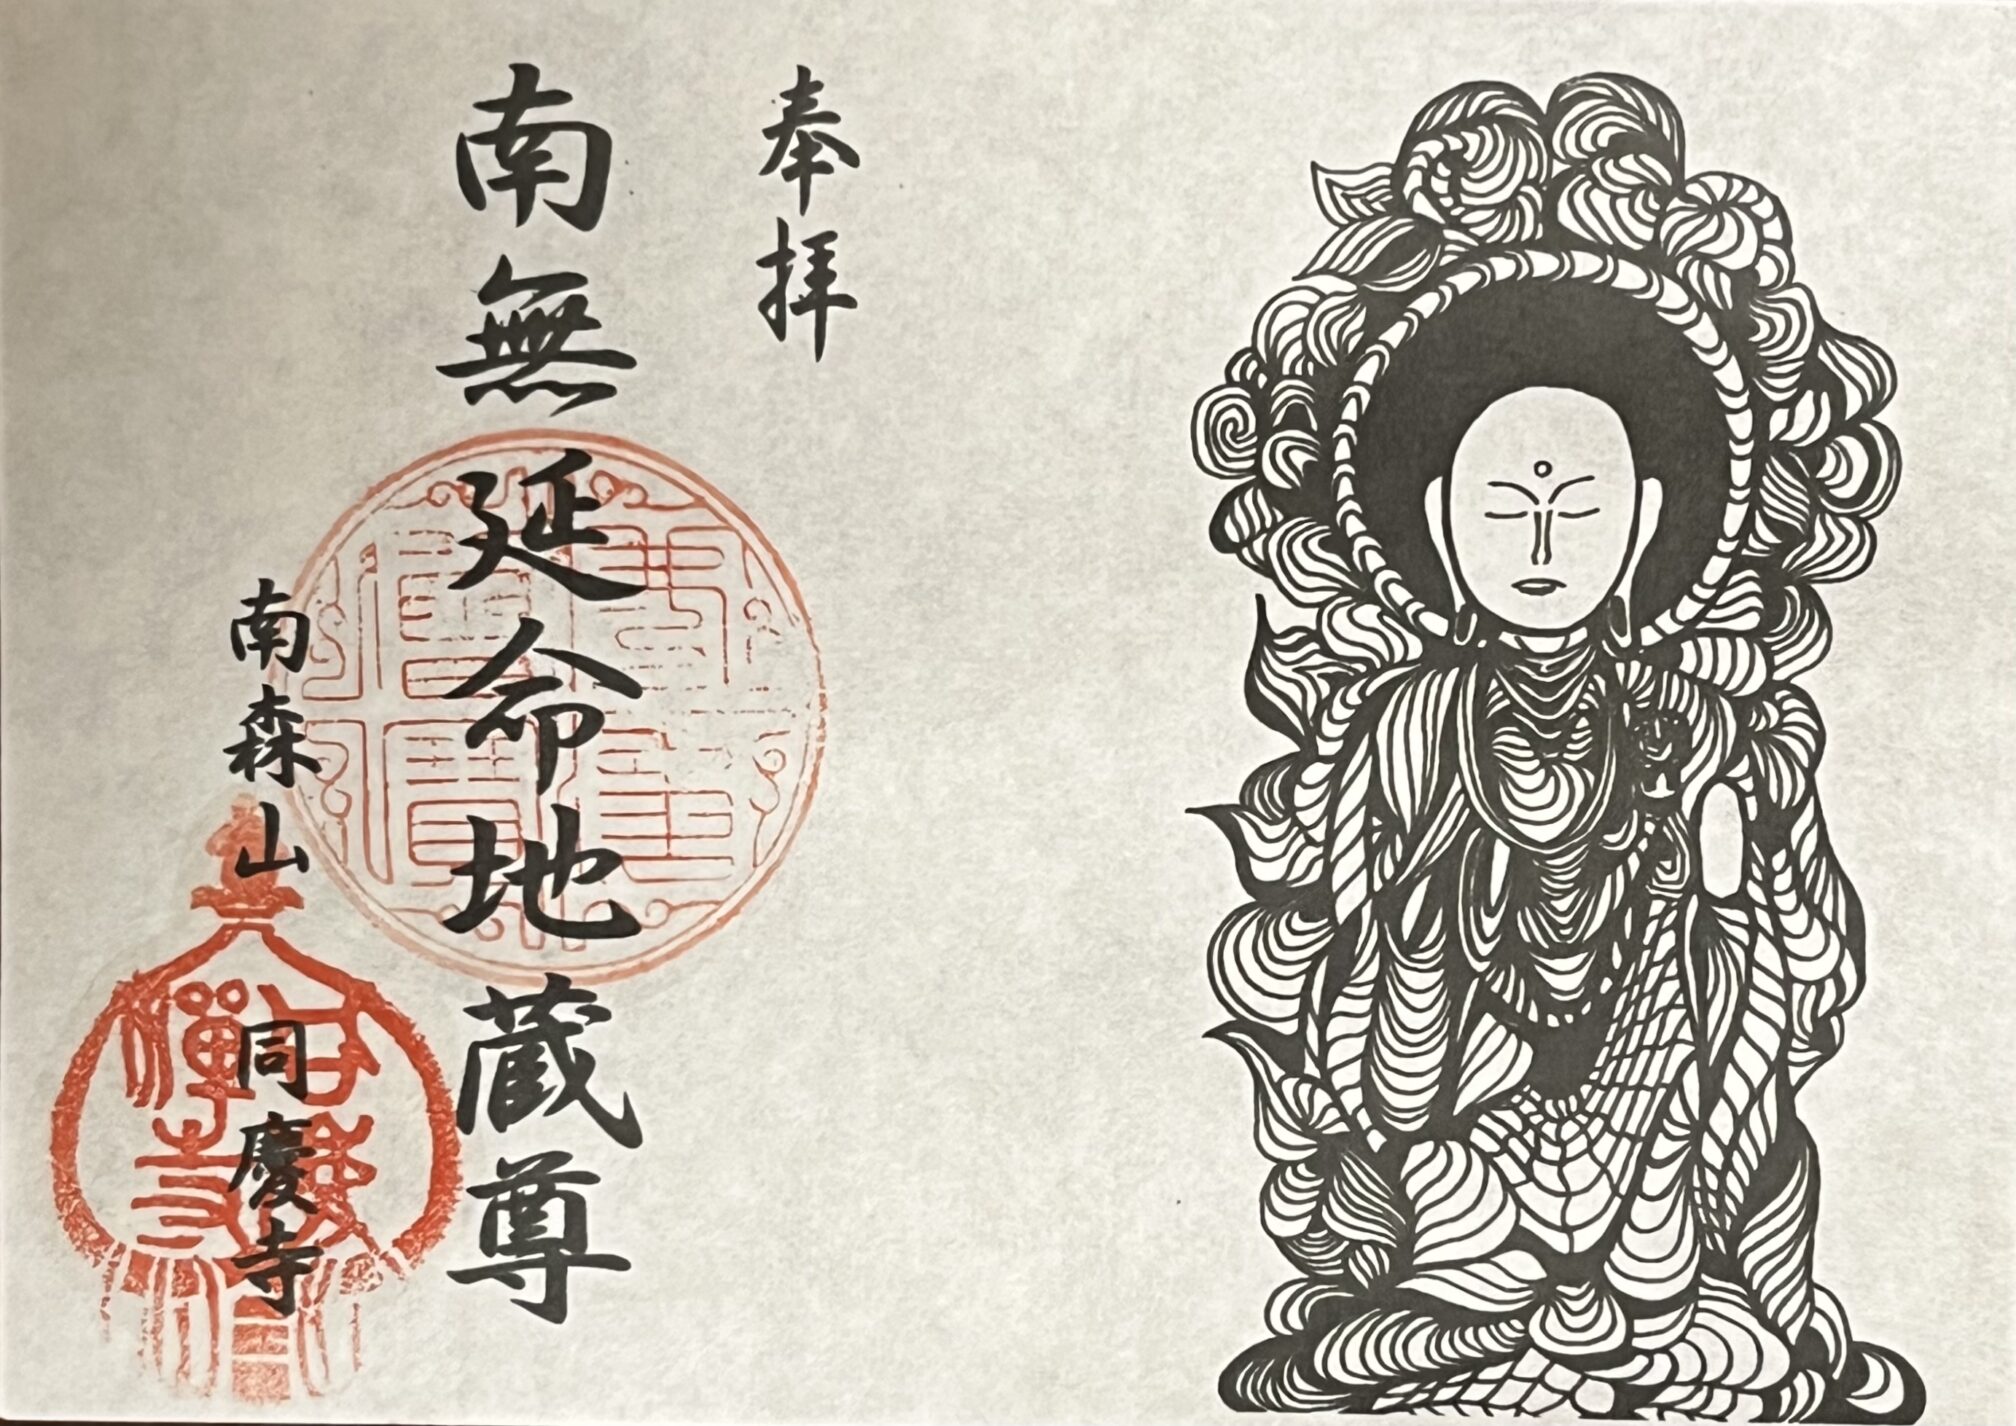 奉拝
南無延命地蔵尊
南森山
同慶寺